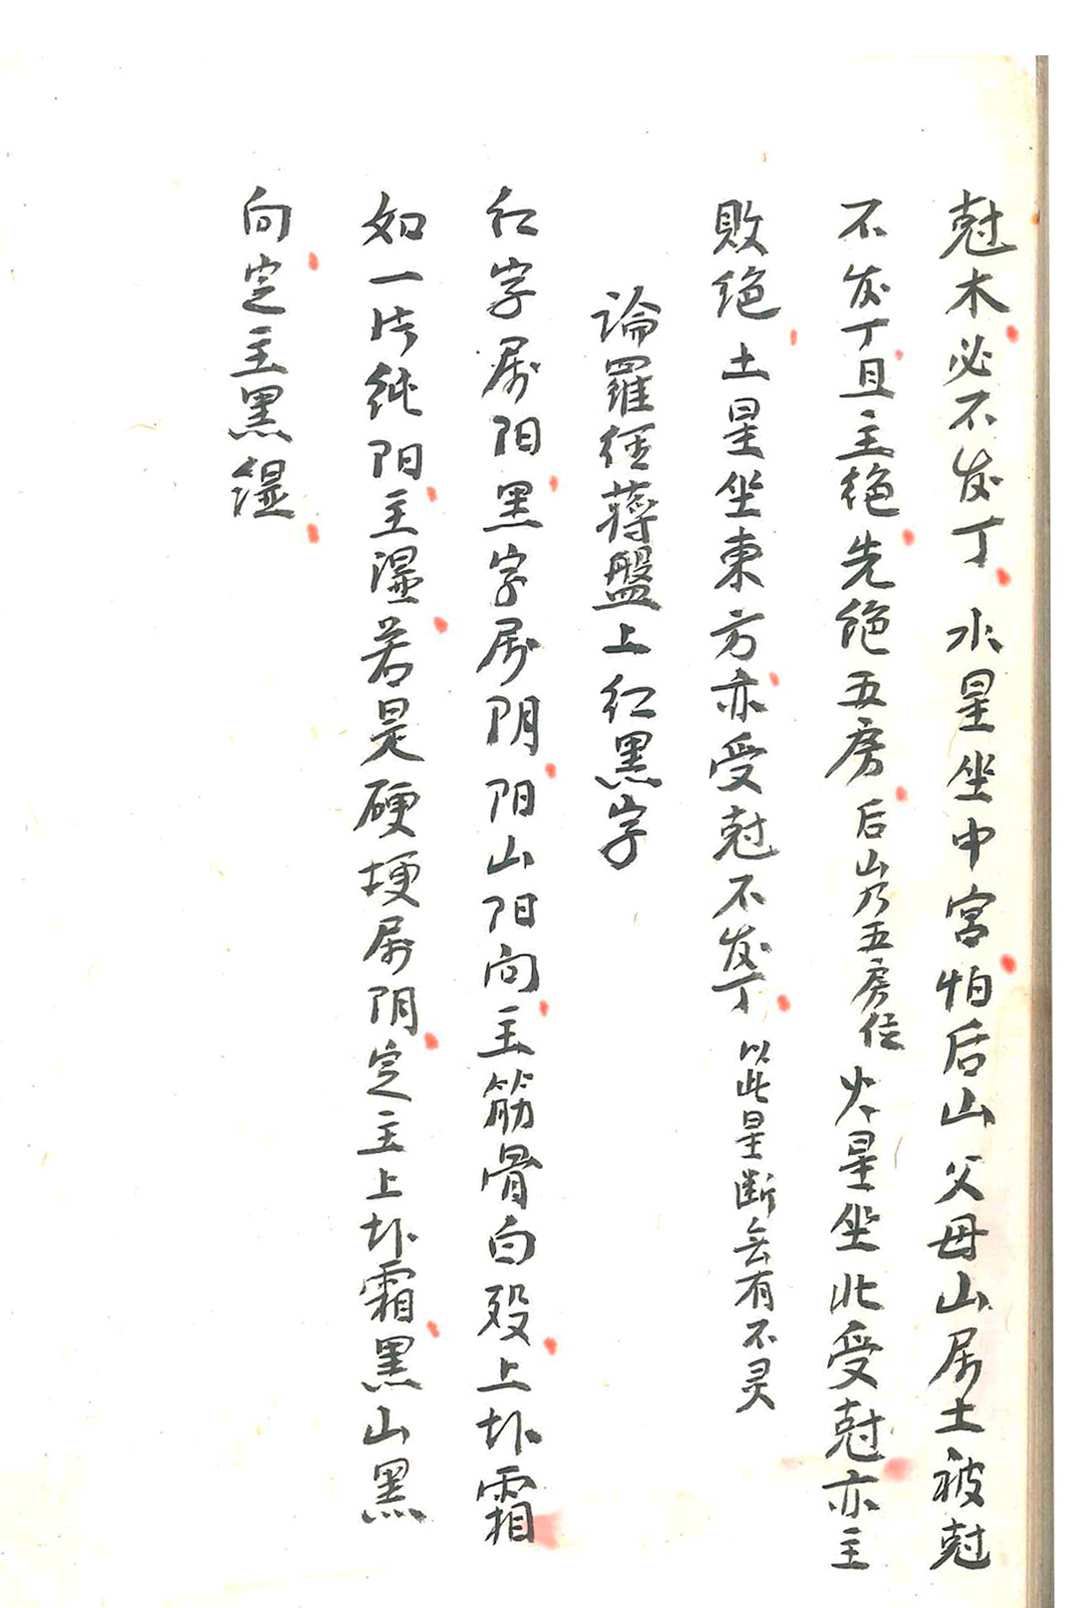 尅木必不发丁 水星坐中宮怕后山父母山属土被尅
不发丁且主绝先绝五房 后山乃五房位 火星坐北受尅亦主
敗绝 土星坐東方亦受尅不发丁 以此星断无有不灵
論羅經蔣盤上红黑字
红字属阳黑字属阴阳山阳向主筋骨白殁上圤霜
如一片纯阳主濕若是硬埂属阴定主上圤霜黑山黑
向定主黑濕